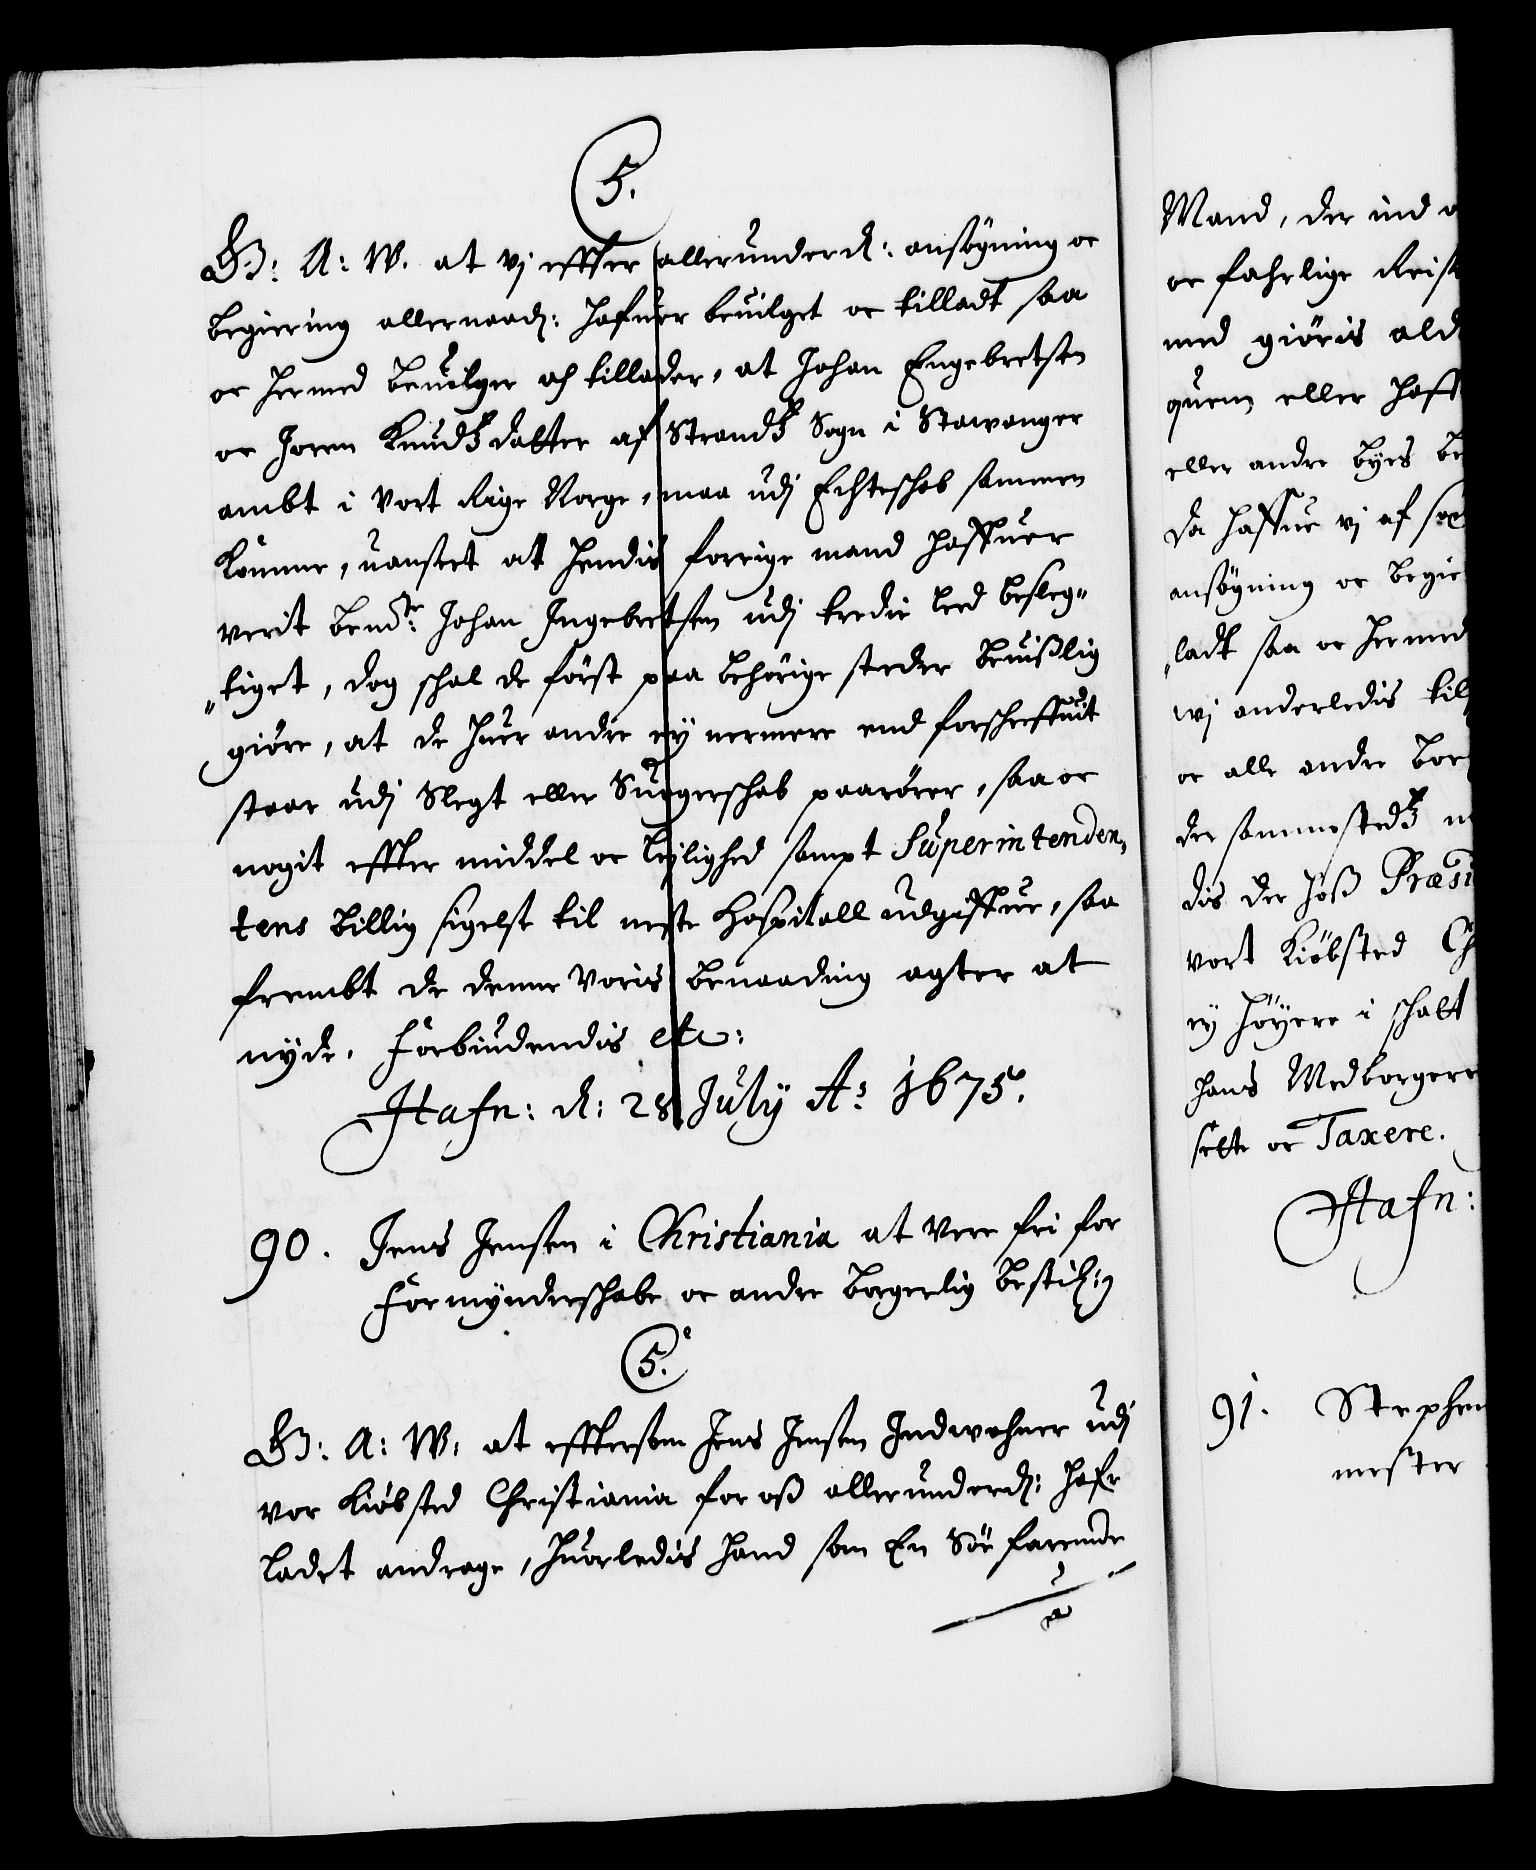 5.
G: A: W. at vj effter allerunderd: ansögning oc
begiering allernaad: hafuer beuilget oc tilladt saa
oc hermed beuilger och tillader, at Johan Engebretsen
oc Joren Knudtzdatter af Strandtz Sogn i Stawanger
ambt i Vort Rige Norge, maa udj Echteschab sammen
komme, uanseet att hendis forrige mand haffuer
verit bemte: Johan Ingebretsen udj tredie leed besleg„
„tiget, dog schal de först paa behörige steder beuißlig
giöre, at de huer andre ey nermere end forschreffuit
staar udj Slegt eller Suogerschab paarörer, saa oc
nogit effter middel oc lejlighed sampt Superintenden„
tens billig sigelse til neste Hospitall udgiffue, saa
frembt de denne Voris benaading agter at
nyde. Forbiudendis etc:
Hafn: d: 28 July Ao: 1675.
90. Jens Jensen i Christiania at vere fri for
Formynderschabe oc andre borgerlig bestil:
5.
G: A: W: at efftersom Jens Jensen Indwohner udj
vor kiöbsted Christiania for oß allerunderd: hafr
ladet andrage, huorledis hand som En Söe farende
Mand, der ind
oc fahrlige Reis
med giöris ald
quem eller haff
eller andre byes be
da haffue vj af
ansögning oc begie
„ladt saa oc hermed
wj anderledis til
oc alle andre bor
der sammestedtz
dis der hoß Præsi
vort Kiöbsted Ch
ey höyere i schatt
hans Medborgere
sette oc Taxere.
Hafn:
91. Stephen
mester